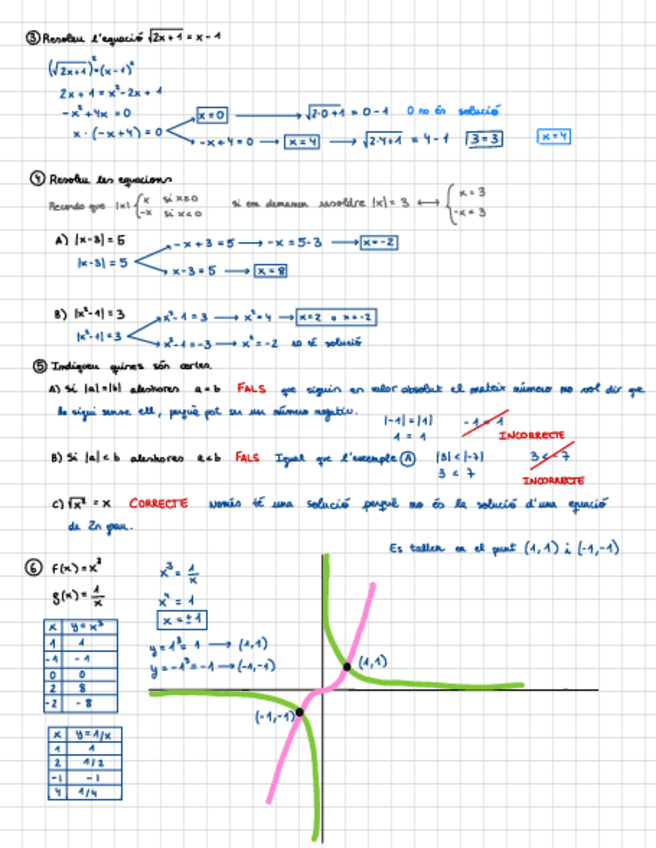 ③ Resoleu l'equació √2x+1 = x-1
(√2x+1)² = (x-1)²
2x+1 = x²-2x+1
-x²+4x = 0
x·(-x+4) = 0
x=0 → √2·0+1 = 0-1 0 no és solució
-x+4=0 → x=4 → √2·4+1 = 4-1 3=3 x=4
④ Resoleu les equacions
Recorda que |x| { x si x≥0
-x si x<0
si em demanen resoldre |x| = 3 ↔ { x=3
-x=3
A) |x-3| = 5
|x-3| = 5
-x+3=5 → -x=5-3 → x=-2
x-3=5 → x=8
B) |x²-1| = 3
|x²-1| = 3
x²-1=3 → x²=4 → x=2 o x=-2
x²-1=-3 → x²=-2 no té solució
⑤ Indiqueu quines són certes.
A) Si |a|=|b| aleshores a=b FALS que siguin en valor absolut el mateix número no vol dir que
ho sigui sense ell, perquè pot ser un número negatiu.
|-1| = |1| -1 = 1
1 = 1 INCORRECTE
B) Si |a|<b aleshores a<b FALS Igual que l'exemple Ⓐ |3| < |-7| 3 < -7
3 < 7 INCORRECTE
C) √x² = x CORRECTE Només té una solució perquè no és la solució d'una equació
de 2n grau.
Es tallen en el punt (1,1) i (-1,-1)
⑥ f(x)=x³
g(x)=1/x
x³ = 1/x
x⁴ = 1
x = ±1
y=1³=1 → (1,1)
y=-1³=-1 → (-1,-1)
x y=x³
1 1
-1 -1
0 0
2 8
-2 -8
x y=1/x
1 1
2 1/2
-1 -1
4 1/4
(1,1)
(-1,-1)